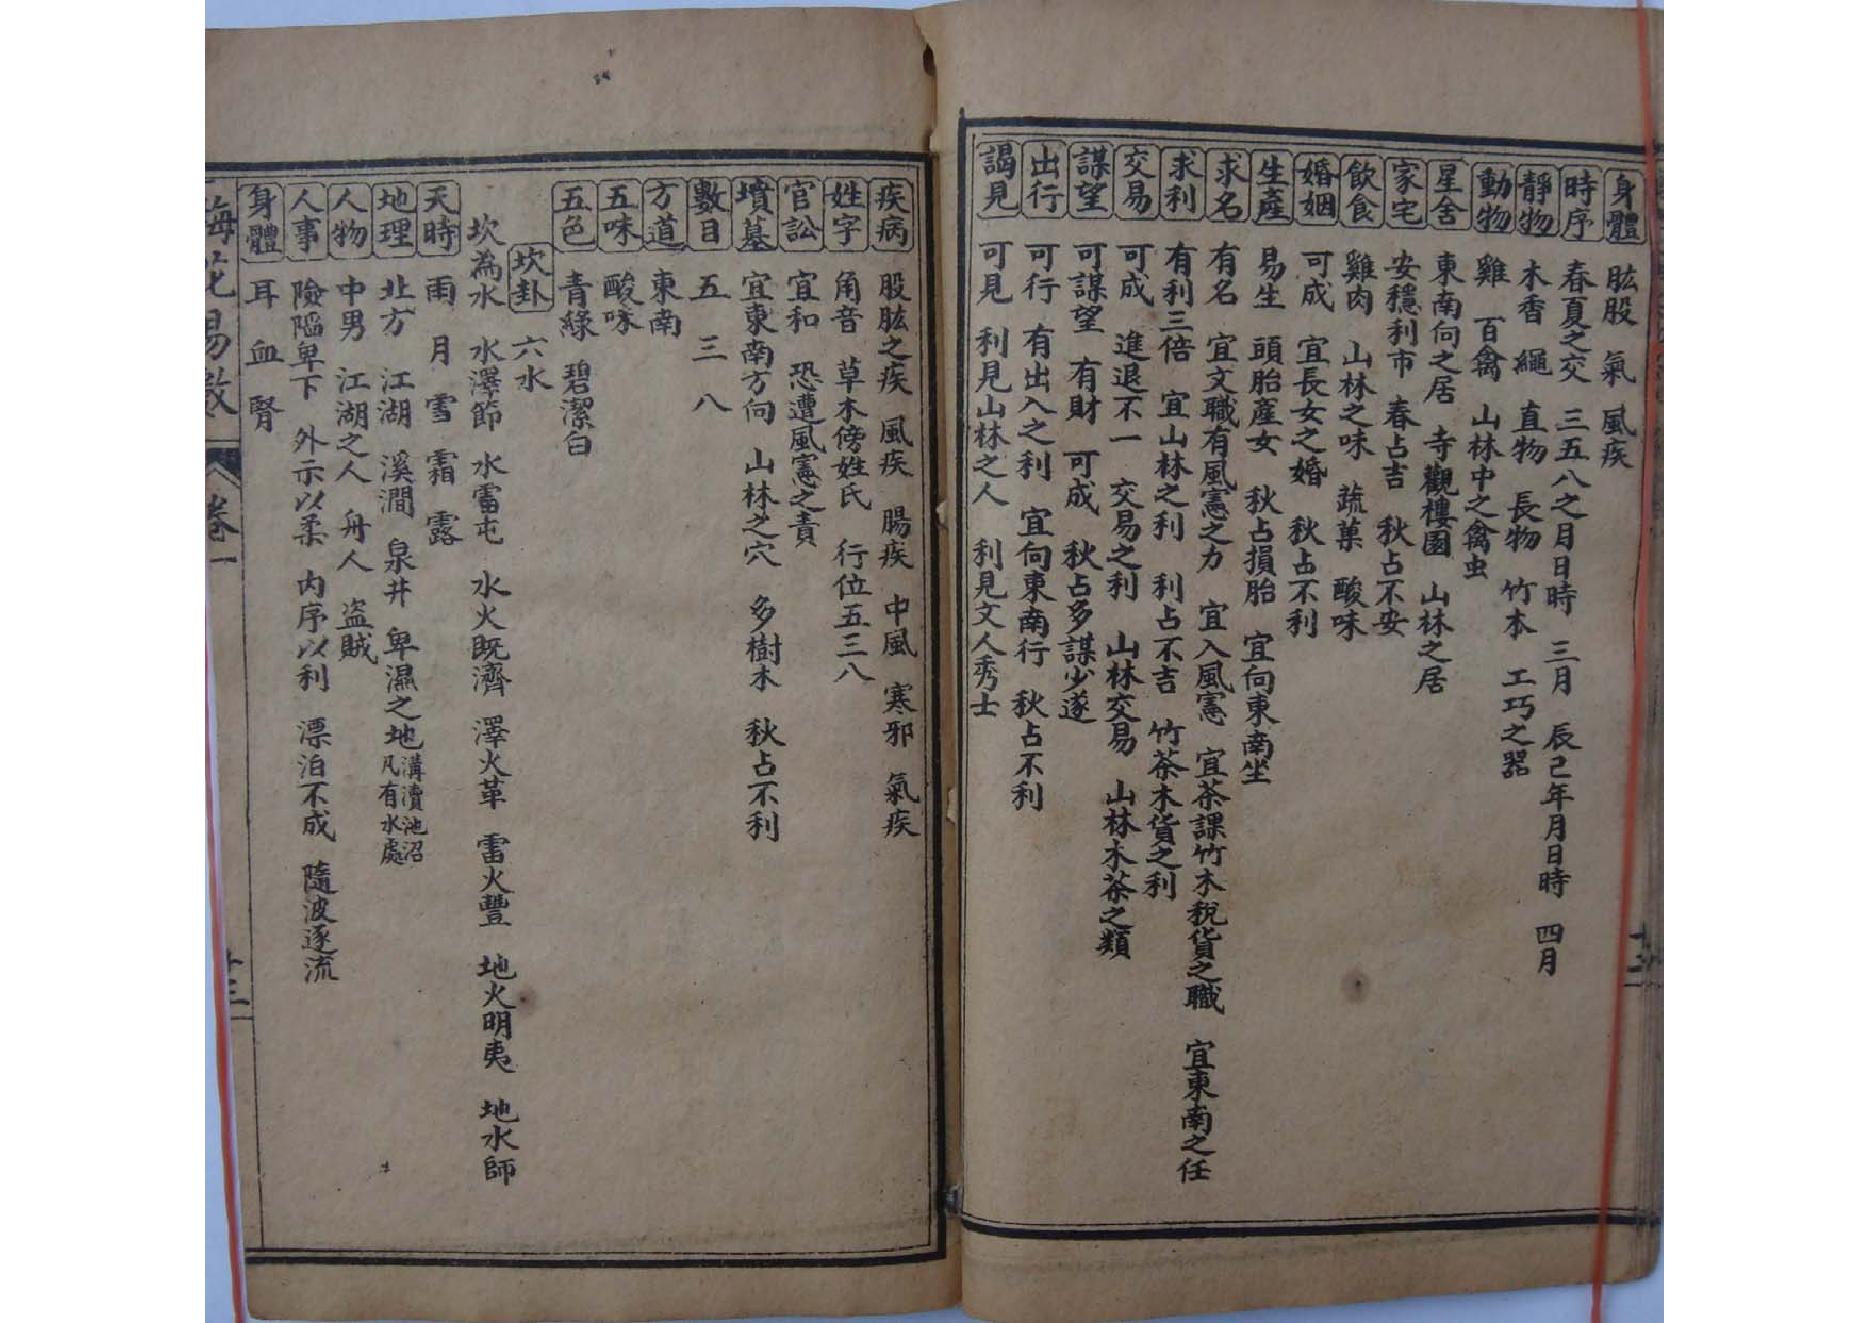 身體 肱股 氣 風疾
時序 春夏之交 三五八之月日時 三月 辰巳年月日時 四月
靜物 木香 繩 直物 長物 竹木 工巧之器
動物 雞 百禽 山林中之禽虫
星舍 東南向之居 寺觀樓園 山林之居
家宅 安穩利市 春占吉 秋占不安
飲食 雞肉 山林之味 蔬菓 酸味
婚姻 可成 宜長女之婚 秋占不利
生產 易生 頭胎產女 秋占損胎 宜向東南坐
求名 有名 宜文職有風憲之力 宜入風憲 宜茶課竹木稅貨之職 宜東南之任
求利 有利三倍 宜山林之利 利占不吉 竹茶木貨之利
交易 可成 進退不一 交易之利 山林交易 山林木茶之類
謀望 可謀望 有財 可成 秋占多謀少遂
出行 可行 有出入之利 宜向東南行 秋占不利
謁見 可見 利見山林之人 利見文人秀士
疾病 股肱之疾 風疾 腸疾 中風 寒邪 氣疾
姓字 角音 草木傍姓氏 行位五三八
官訟 宜和 恐遭風憲之責
墳墓 宜東南方向 山林之穴 多樹木 秋占不利
數目 五 三 八
方道 東南
五味 酸味
五色 青綠 碧潔白
坎卦 六水
坎為水 水澤節 水雷屯 水火既濟 澤火革 雷火豐 地火明夷 地水師
天時 雨 月 雪 霜 露
地理 北方 江湖 溪澗 泉井 卑濕之地 溝瀆池沼 凡有水處
人物 中男 江湖之人 舟人 盜賊
人事 險陷卑下 外示以柔 內序以利 漂泊不成 隨波逐流
身體 耳 血 腎
梅花易數 卷一 十三